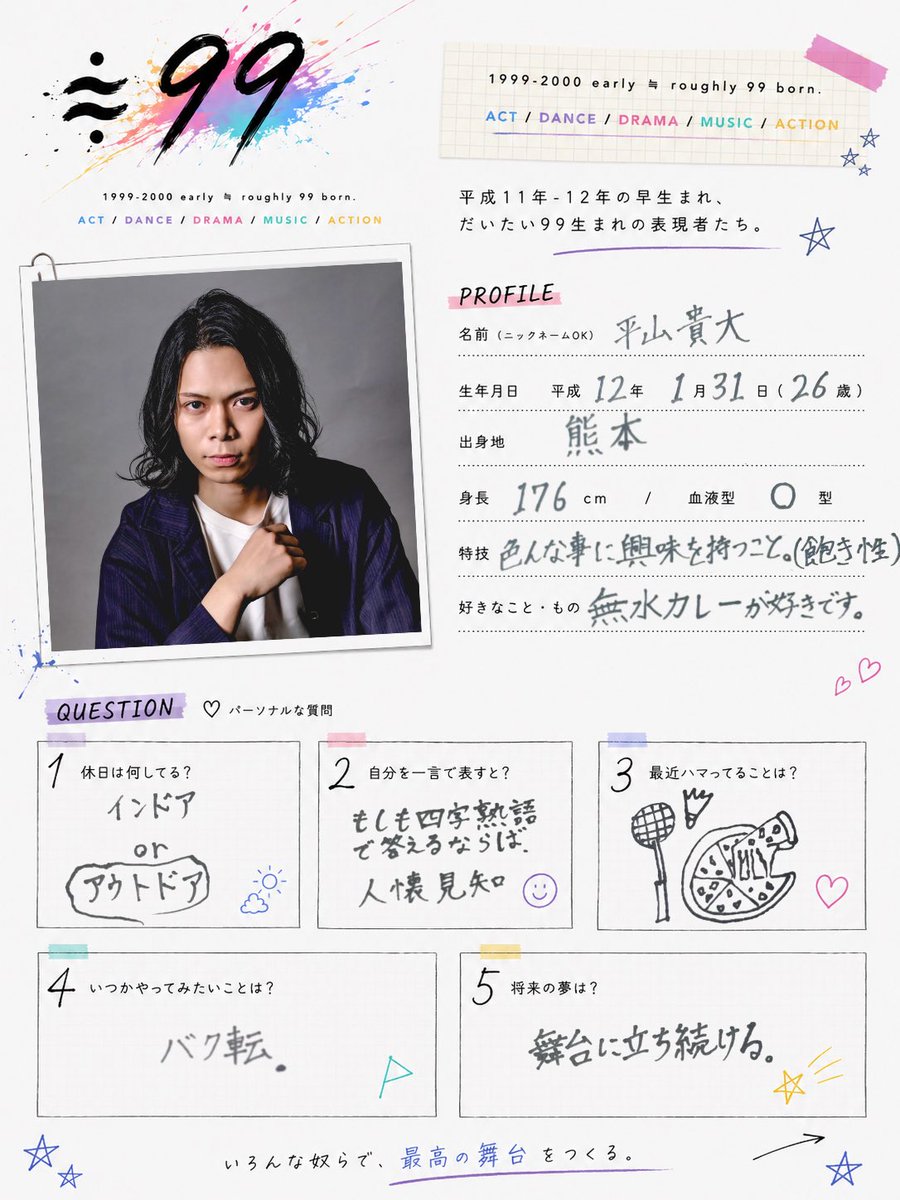 ≒99
1999-2000 early ≒ roughly 99 born.
ACT / DANCE / DRAMA / MUSIC / ACTION
1999-2000 early ≒ roughly 99 born.
ACT / DANCE / DRAMA / MUSIC / ACTION
平成11年-12年の早生まれ、
だいたい99生まれの表現者たち。
PROFILE
名前（ニックネームOK） 平山貴大
生年月日 平成 12年 1月31日（26歳）
出身地 熊本
身長 176 cm / 血液型 O 型
特技 色んな事に興味を持つこと。(飽き性)
好きなこと・もの 無水カレーが好きです。
QUESTION ♡ パーソナルな質問
1 休日は何してる？
インドア
or
アウトドア
2 自分を一言で表すと？
もしも四字熟語
で答えるならば、
人懐見知
3 最近ハマってることは？
4 いつかやってみたいことは？
バク転。
5 将来の夢は？
舞台に立ち続ける。
いろんな奴らで、最高の舞台をつくる。